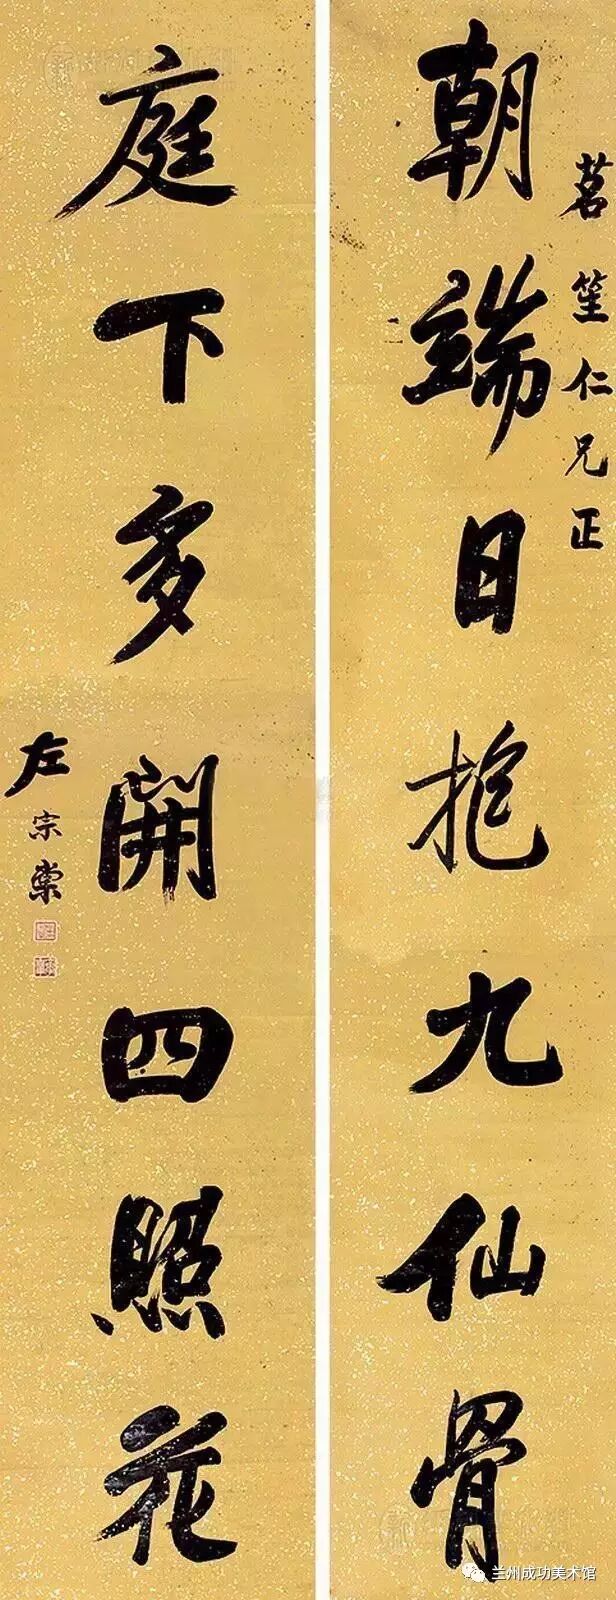 茗笙仁兄正
朝端日抱九仙骨
庭下多開四照花
左宗棠
兰州成功美术馆